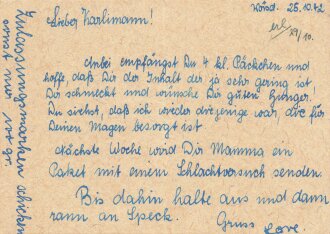 Wörd. 26.10.42
Lieber Karlimann!
erh. 29/10.
Anbei empfängst Du 4 kl. Päckchen und
hoffe, daß Dir der Inhalt der ja sehr gering ist
Dir schmeckt und wünsche Dir guten Hunger!
Du siehst, daß ich wieder diejenige war, die für
Deinen Magen besorgt ist
nächste Woche wird Dir Mamma ein
Paket mit einem Schlachtversuch senden.
Bis dahin halte aus und dann
rann an Speck.
Gruss Lore.
Zulassungsmarken schicken
sonst nur 100 gr.